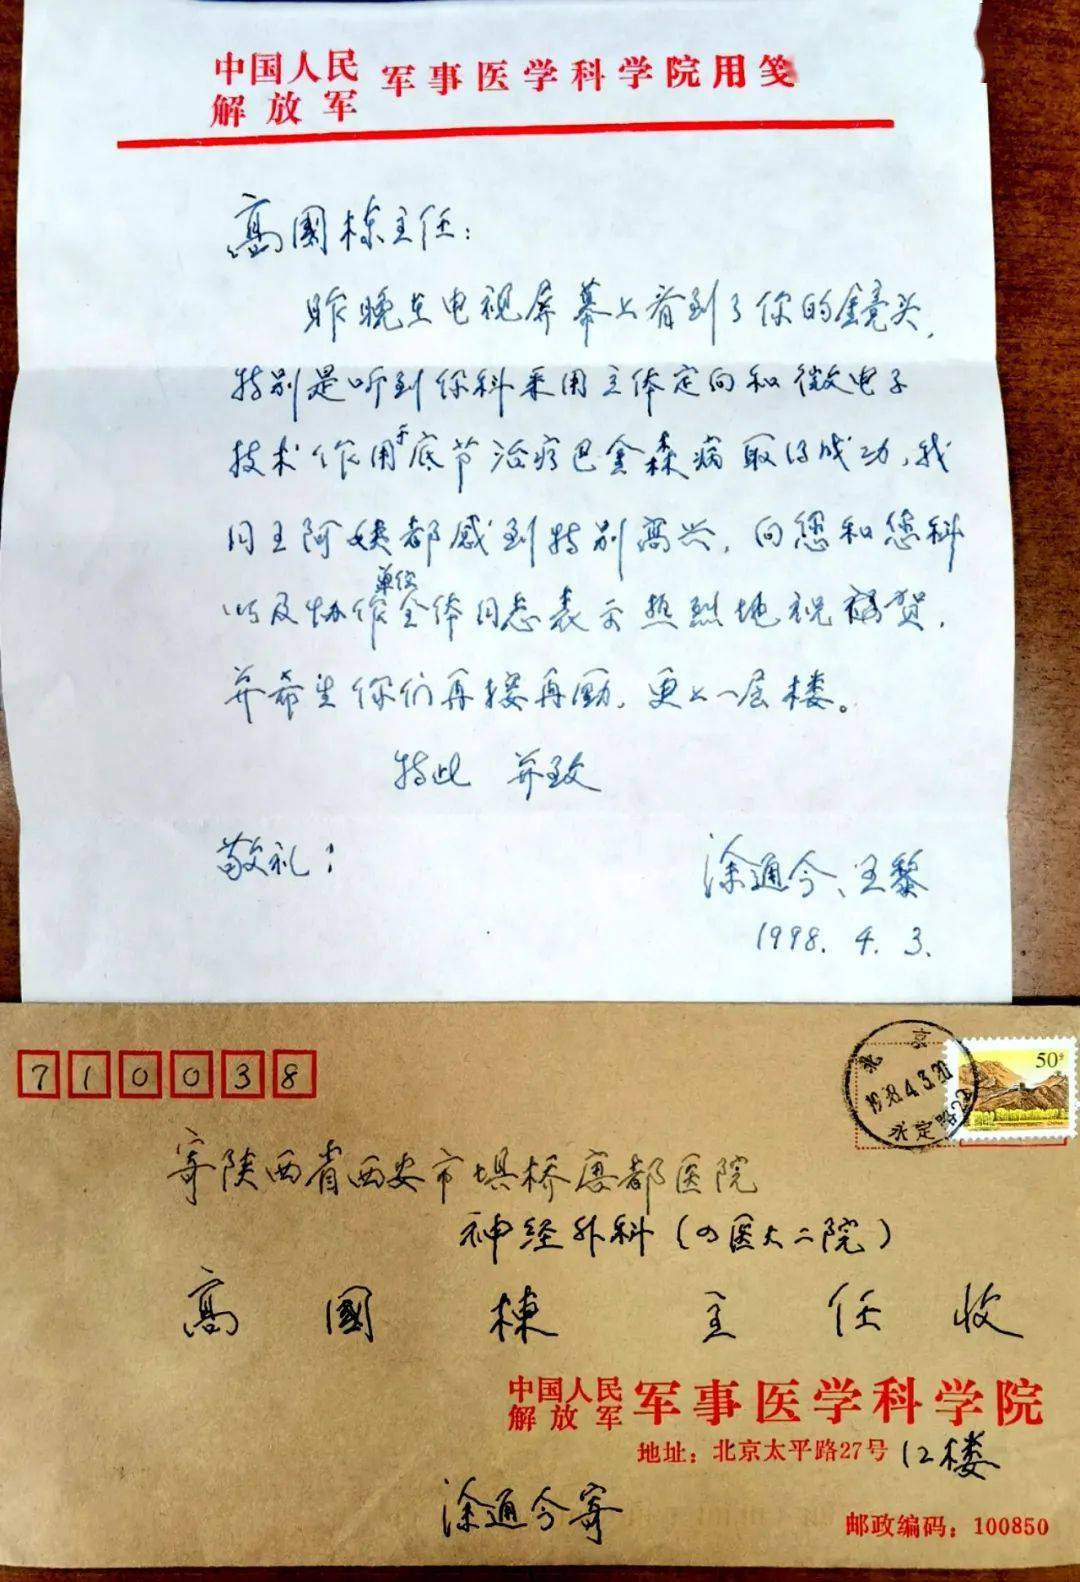 中国人民解放军 军事医学科学院用笺
高國栋主任：
昨晚在电视屏幕上看到了你的鏡头，
特别是听到你科采用立体定向和微电子
技术作用于底节治疗巴金森病取得成功，我
同王阿姨都感到特别高兴，向您和您科
以及协作单位全体同志表示热烈地祝贺，
并希望你们再接再励，更上一层楼。
特此 并致
敬礼！
涂通今、王黎
1998. 4. 3.
710038
北京
1998.4.3.20
永定路22
50分
寄陕西省西安市埧桥唐都医院
神经外科（四医大二院）
高國棟主任收
中国人民解放军 军事医学科学院
地址：北京太平路27号 12楼
涂通今寄
邮政编码：100850